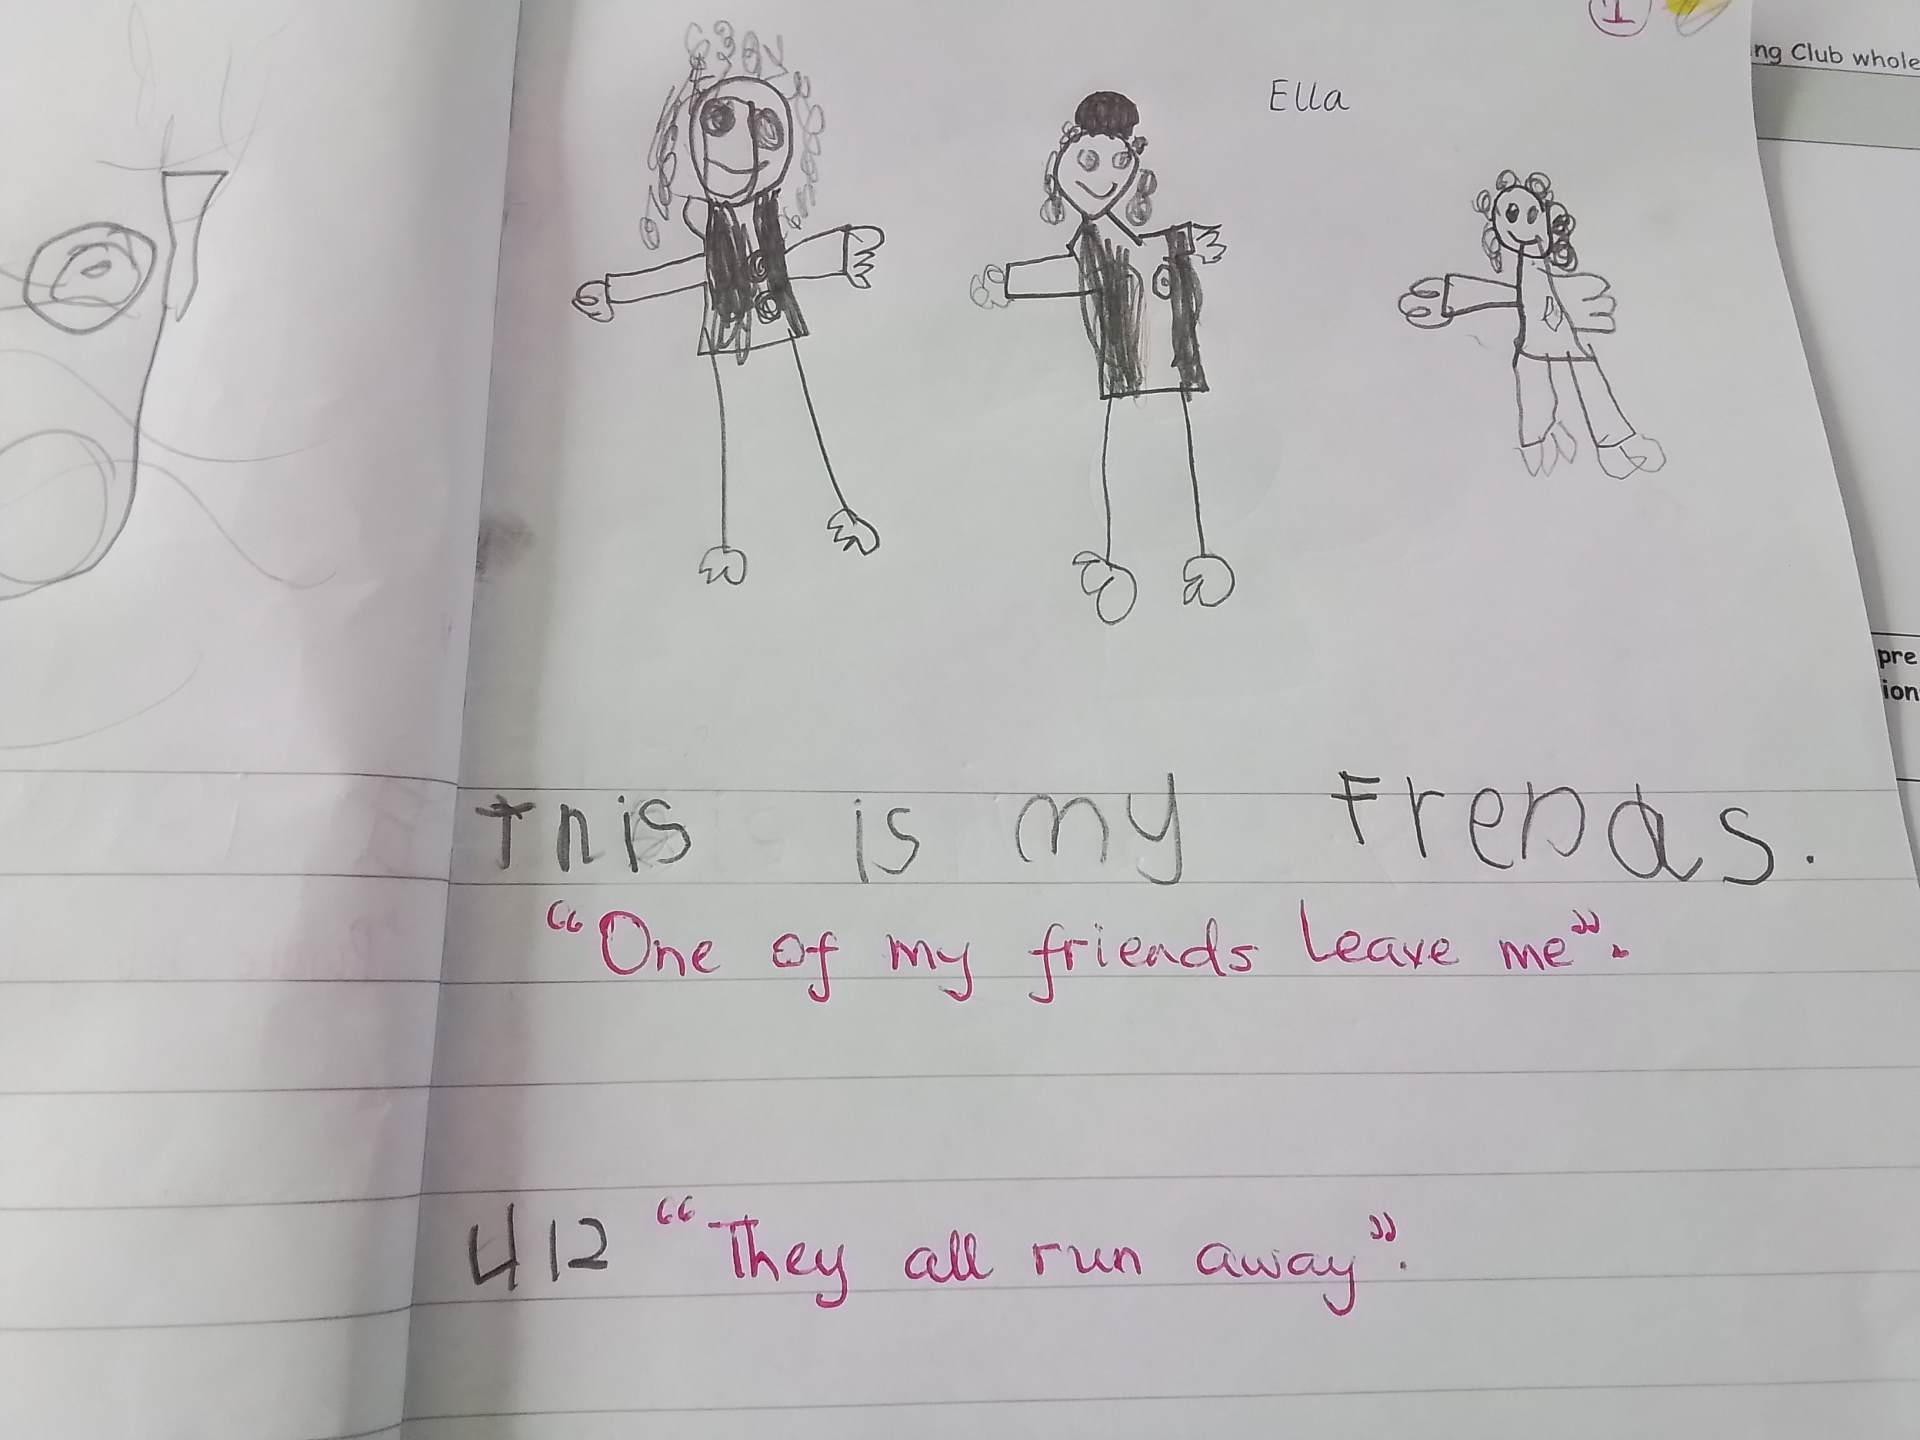 1
ng Club whole
Ella
pre
ion
This is my Frends.
“One of my friends leave me”.
412 “They all run away”.